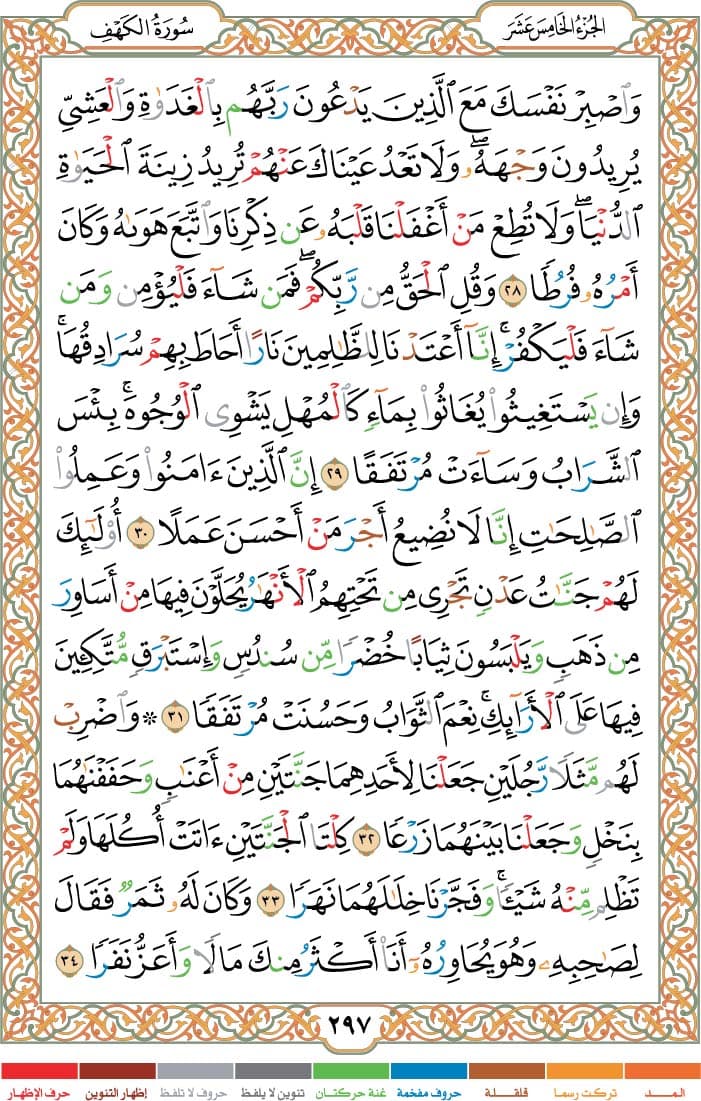 الجزء الخامس عشر
سورة الكهف
وَٱصۡبِرۡ نَفۡسَكَ مَعَ ٱلَّذِينَ يَدۡعُونَ رَبَّهُم بِٱلۡغَدَوٰةِ وَٱلۡعَشِيِّ
يُرِيدُونَ وَجۡهَهُۥۖ وَلَا تَعۡدُ عَيۡنَاكَ عَنۡهُمۡ تُرِيدُ زِينَةَ ٱلۡحَيَوٰةِ
ٱلدُّنۡيَاۖ وَلَا تُطِعۡ مَنۡ أَغۡفَلۡنَا قَلۡبَهُۥ عَن ذِكۡرِنَا وَٱتَّبَعَ هَوَىٰهُ وَكَانَ
أَمۡرُهُۥ فُرُطٗا ٢٨ وَقُلِ ٱلۡحَقُّ مِن رَّبِّكُمۡۖ فَمَن شَآءَ فَلۡيُؤۡمِن وَمَن
شَآءَ فَلۡيَكۡفُرۡۚ إِنَّآ أَعۡتَدۡنَا لِلظَّٰلِمِينَ نَارًا أَحَاطَ بِهِمۡ سُرَادِقُهَاۚ
وَإِن يَسۡتَغِيثُواْ يُغَاثُواْ بِمَآءٖ كَٱلۡمُهۡلِ يَشۡوِي ٱلۡوُجُوهَۚ بِئۡسَ
ٱلشَّرَابُ وَسَآءَتۡ مُرۡتَفَقًا ٢٩ إِنَّ ٱلَّذِينَ ءَامَنُواْ وَعَمِلُواْ
ٱلصَّٰلِحَٰتِ إِنَّا لَا نُضِيعُ أَجۡرَ مَنۡ أَحۡسَنَ عَمَلًا ٣٠ أُوْلَٰٓئِكَ
لَهُمۡ جَنَّٰتُ عَدۡنٖ تَجۡرِي مِن تَحۡتِهِمُ ٱلۡأَنۡهَٰرُ يُحَلَّوۡنَ فِيهَا مِنۡ أَسَاوِرَ
مِن ذَهَبٖ وَيَلۡبَسُونَ ثِيَابًا خُضۡرٗا مِّن سُندُسٖ وَإِسۡتَبۡرَقٖ مُّتَّكِـِٔينَ
فِيهَا عَلَى ٱلۡأَرَآئِكِۚ نِعۡمَ ٱلثَّوَابُ وَحَسُنَتۡ مُرۡتَفَقٗا ٣١ ۞ وَٱضۡرِبۡ
لَهُم مَّثَلٗا رَّجُلَيۡنِ جَعَلۡنَا لِأَحَدِهِمَا جَنَّتَيۡنِ مِنۡ أَعۡنَٰبٖ وَحَفَفۡنَٰهُمَا
بِنَخۡلٖ وَجَعَلۡنَا بَيۡنَهُمَا زَرۡعٗا ٣٢ كِلۡتَا ٱلۡجَنَّتَيۡنِ ءَاتَتۡ أُكُلَهَا وَلَمۡ
تَظۡلِم مِّنۡهُ شَيۡـٔٗاۚ وَفَجَّرۡنَا خِلَٰلَهُمَا نَهَرٗا ٣٣ وَكَانَ لَهُۥ ثَمَرٞ فَقَالَ
لِصَٰحِبِهِۦ وَهُوَ يُحَاوِرُهُۥٓ أَنَا۠ أَكۡثَرُ مِنكَ مَالٗا وَأَعَزُّ نَفَرٗا ٣٤
٢٩٧
المـــد تركت رسما قلقـلة حروف مفخمة غنة حركتان تنوين لا يلفظ حروف لا تلفظ إظهار التنوين حرف الإظهار